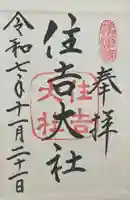 奉拝
住吉大社
令和七年十一月二十一日